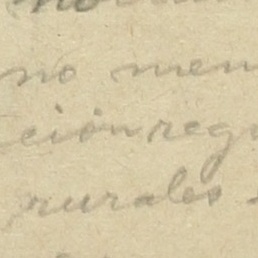 no men
ción reg
rurales